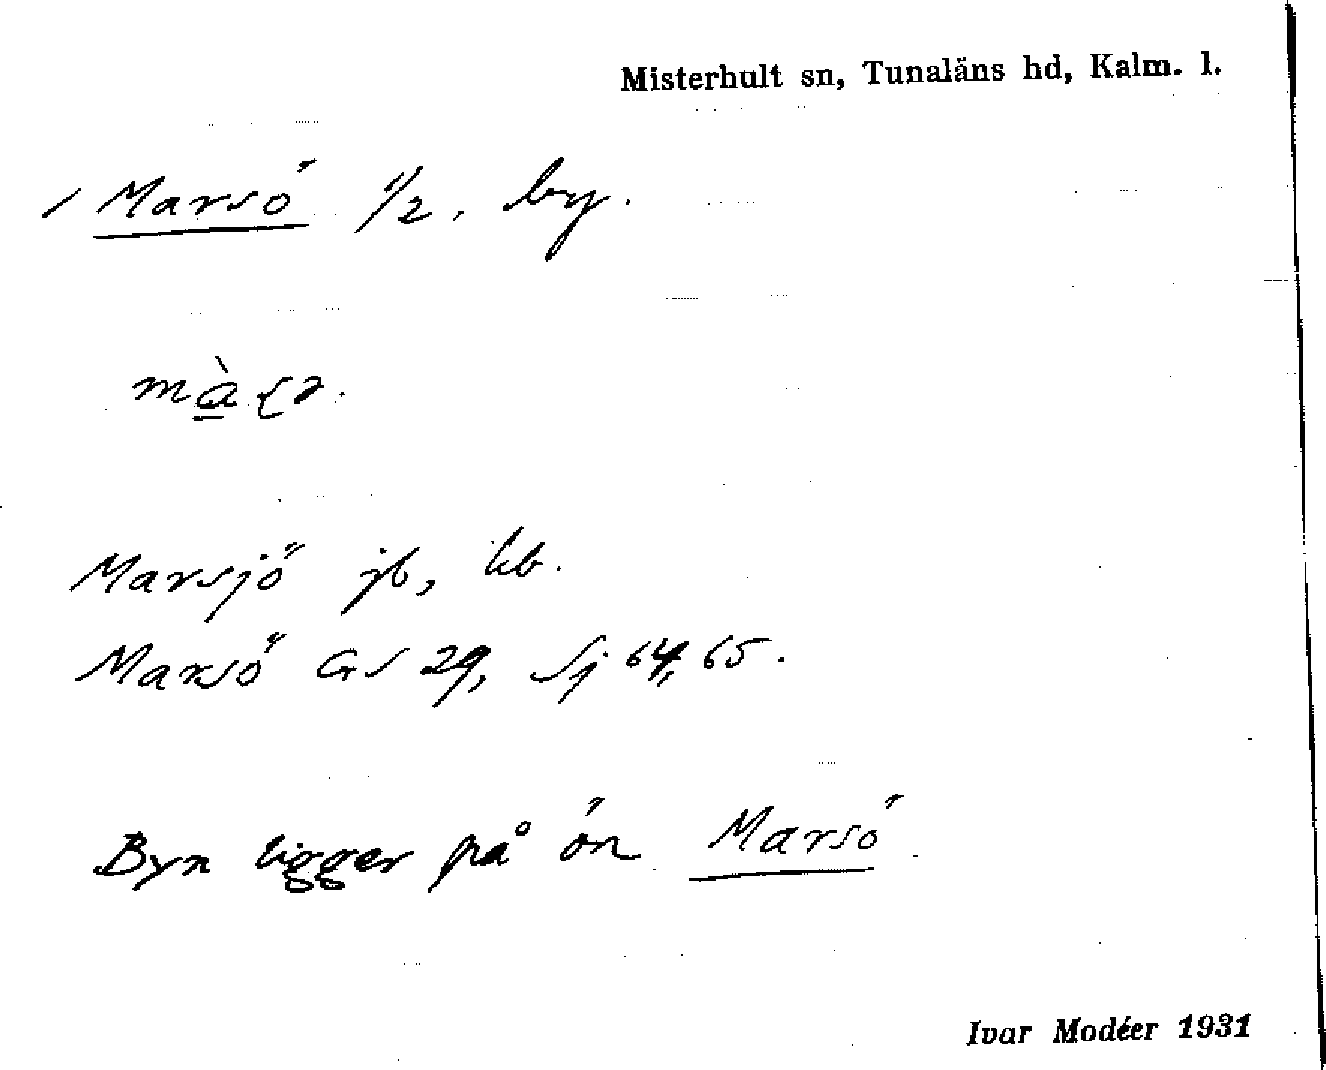 Misterhult sn, Tunaläns hd, Kalm. l.
/ Marsö 1/2. by.
Marsjö jb, kb.
Marsö GS 29, Sj 64, 65.
Byn ligger på ön Marsö.
Ivar Modéer 1931